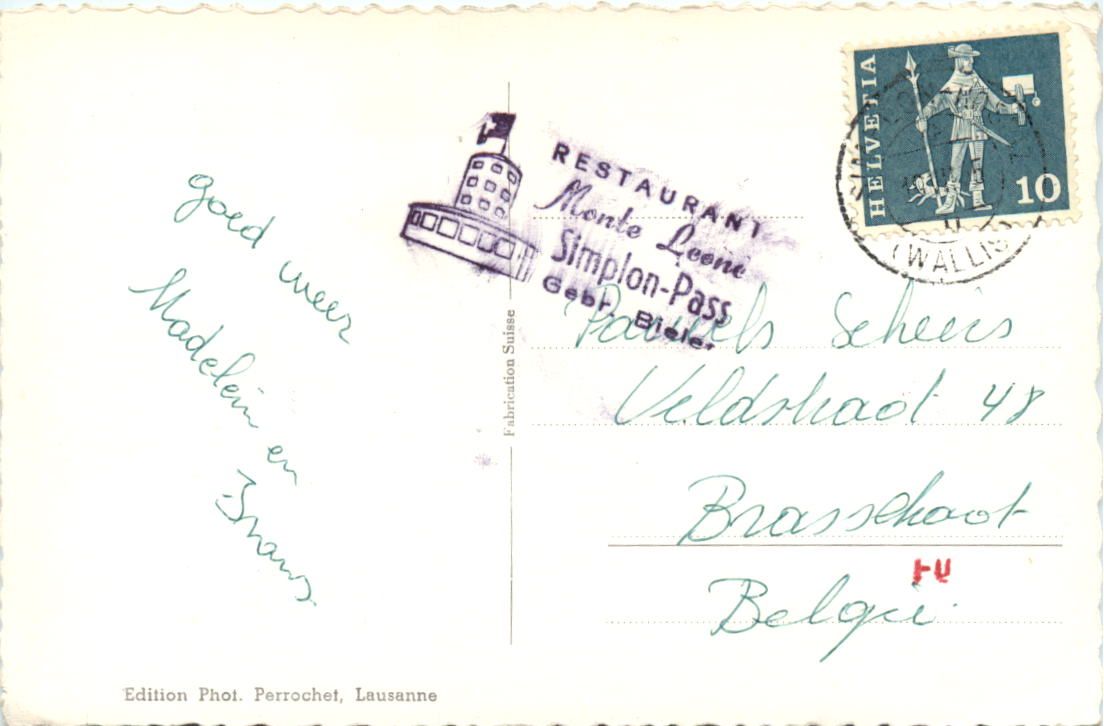 goed weer
Madelein en
Frans
RESTAURANT
Monte Leone
Simplon-Pass
Gebr. Bieler
HELVETIA
10
(WALLIS)
Pauwels Scheirs
Veldstraat 48
Brasschaat
België
Fabrication Suisse
Edition Phot. Perrochet, Lausanne